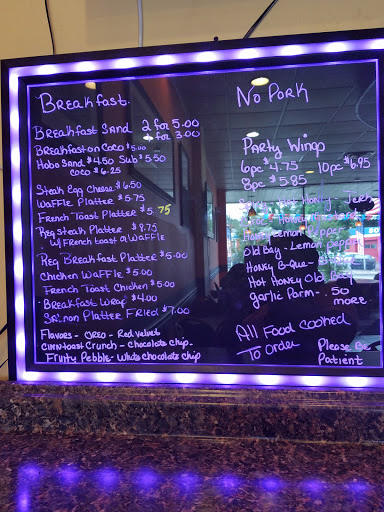 Breakfast.
Breakfast Sand 2 for 5.00
1 for 3.00
Breakfast on Coco $5.00
Hobo Sand $4.50 Sub $5.50
Coco $6.25
Steak Egg Cheese $6.50
Waffle Platter $5.75
French Toast Platter $5.75
Reg Steak Platter $8.75
w/ French Toast or Waffle
Reg Breakfast Platter $6.00
Chicken Waffle $5.00
French Toast Chicken $5.00
Breakfast Wrap $4.00
Salmon Platter Fried $7.00
Flavors - Oreo - Red Velvet
Cinn toast Crunch - Chocolate chip
Fruity Pebble - White chocolate chip
No Pork
Party Wings
6pc $4.75 10pc $6.95
8pc $5.85
Honey Jerk
Honey Lemon Pepper
Old Bay - Lemon pepper
Honey B-que -
Hot Honey Old Bay
garlic Parm - .50
more
All Food Cooked
To Order
Please Be
Patient